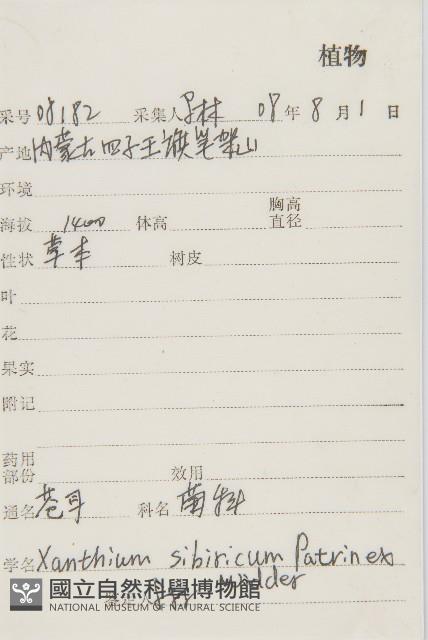 植物
采号 08182 采集人 林 08年 8月1日
产地 内蒙古四子王旗笔架山
环境
海拔 1400 体高 胸高直径
性状 草本 树皮
叶
花
果实
附记
药用部份 效用
通名 苍耳 科名 菊科
学名 Xanthium sibiricum Patrin ex
Widder
國立自然科學博物館
NATIONAL MUSEUM OF NATURAL SCIENCE